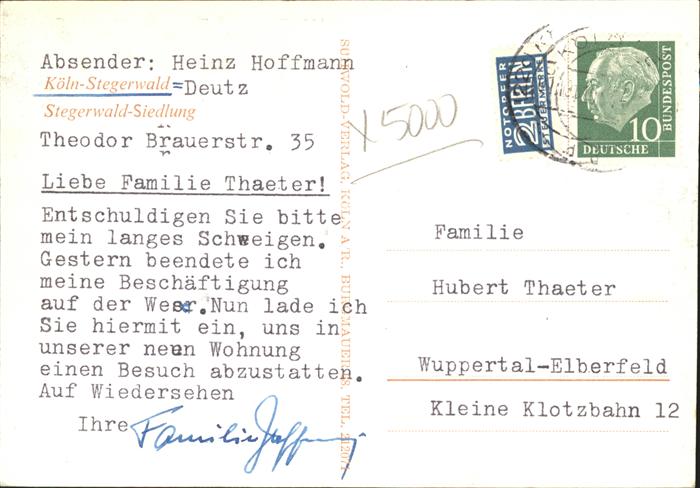 Absender: Heinz Hoffmann
Köln-Stegerwald=Deutz
Stegerwald-Siedlung
Theodor Brauerstr. 35
Liebe Familie Thaeter!
Entschuldigen Sie bitte
mein langes Schweigen.
Gestern beendete ich
meine Beschäftigung
auf der Weser.Nun lade ich
Sie hiermit ein, uns in
unserer neuen Wohnung
einen Besuch abzustatten.
Auf Wiedersehen
Ihre Familie Hoffmann
VERLAG, KÖLN A. R.,
TEL.
X 5000
NOTOPFER
2 BERLIN
STEUERMARKE
KÖLN
10
DEUTSCHE
BUNDESPOST
Familie
Hubert Thaeter
Wuppertal-Elberfeld
Kleine Klotzbahn 12